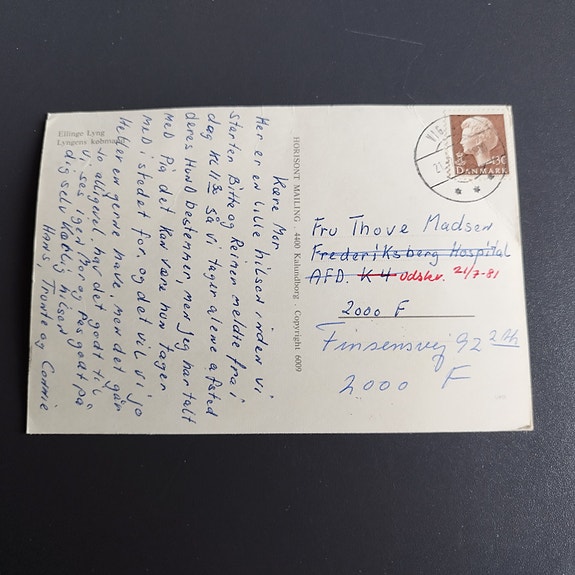 Ellinge Lyng
Lyngens købmand
Kære Mor
Her er en lille hilsen inden vi
starter Bitte og Reiner meldte fra i
dag kl 11 3 så vi tager alene afsted
deres Hund bestemmer, men jeg har talt
med Pia det kan være hun tager
med i stedet for, og det vil vi jo
Hellere end gerne have, men det går
jo alligevel. hav det godt til
vi ses igen Mor og Pas godt på
dig selv Kærlig hilsen
Hans, Tronte og Connie
HORISONT MAILING . 4400 Kalundborg . Copyright 6009
VIG
21
DANMARK
Fru Thove Madsen
Frederiksberg Hospital
AFD. K 4 udskr. 21/7-81
2000 F
Finsensvej 92
2000 F